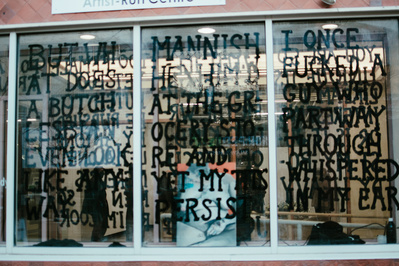 Artist-Run Centre
BUT WH
AT DOES
A BUTCH
LESBIAN
EVEN LOOK
LIKE, ANYH
MANNISH
HEN I'M
AT THE GR
OCERY STO
RE AND
YET MY TITS
PERSIST.
I ONCE
FUCKED A
GUY WHO
PARTWAY
THROUGH
WHISPERED
IN MY EAR